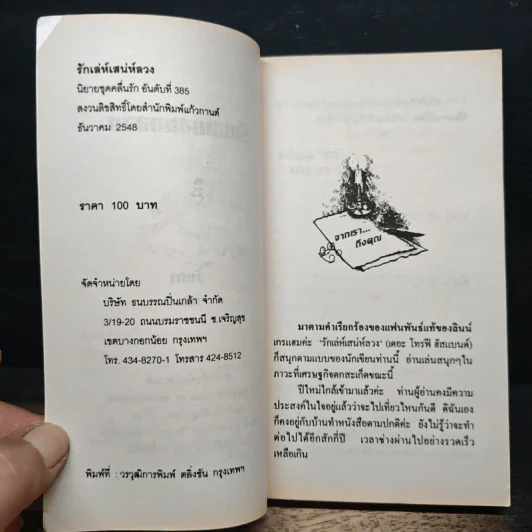 รักเล่ห์เสน่ห์ลวง
นิยายชุดคลื่นรัก อันดับที่ 385
สงวนลิขสิทธิ์โดยสำนักพิมพ์แก้วกานต์
ธันวาคม 2548
ราคา 100 บาท
จัดจำหน่ายโดย
บริษัท ธนบรรณปิ่นเกล้า จำกัด
3/19-20 ถนนบรมราชชนนี ซ.เจริญสุข
เขตบางกอกน้อย กรุงเทพฯ
โทร. 434-8270-1 โทรสาร 424-8512
พิมพ์ที่ : วรวุฒิการพิมพ์ ตลิ่งชัน กรุงเทพฯ
จากเรา...
ถึงคุณ
มาตามคำเรียกร้องของแฟนพันธุ์แท้ของลินน์
เกรแฮมค่ะ 'รักเล่ห์เสน่ห์ลวง' (เดอะ โทรฟี่ ฮัสแบนด์)
ก็สนุกตามแบบของนักเขียนท่านนี้ อ่านเล่นสนุกๆใน
ภาวะที่เศรษฐกิจตกสะเก็ดขณะนี้
ปีใหม่ใกล้เข้ามาแล้วค่ะ ท่านผู้อ่านคงมีความ
ประสงค์ในใจอยู่แล้วว่าจะไปเที่ยวไหนกันดี ดิฉันเอง
ก็คงอยู่บ้านทำหนังสือตามปกติค่ะ ยังไม่รู้ว่าจะทำ
ต่อไปได้อีกสักกี่ปี เวลาช่างผ่านไปอย่างรวดเร็ว
เหลือเกิน